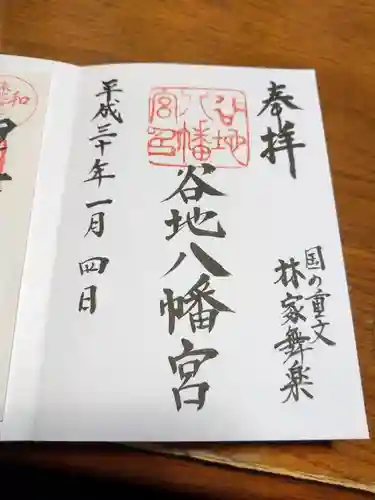 奉拝
国の重文
林家舞楽
谷地八幡宮
谷地八幡宮
平成三十年一月四日